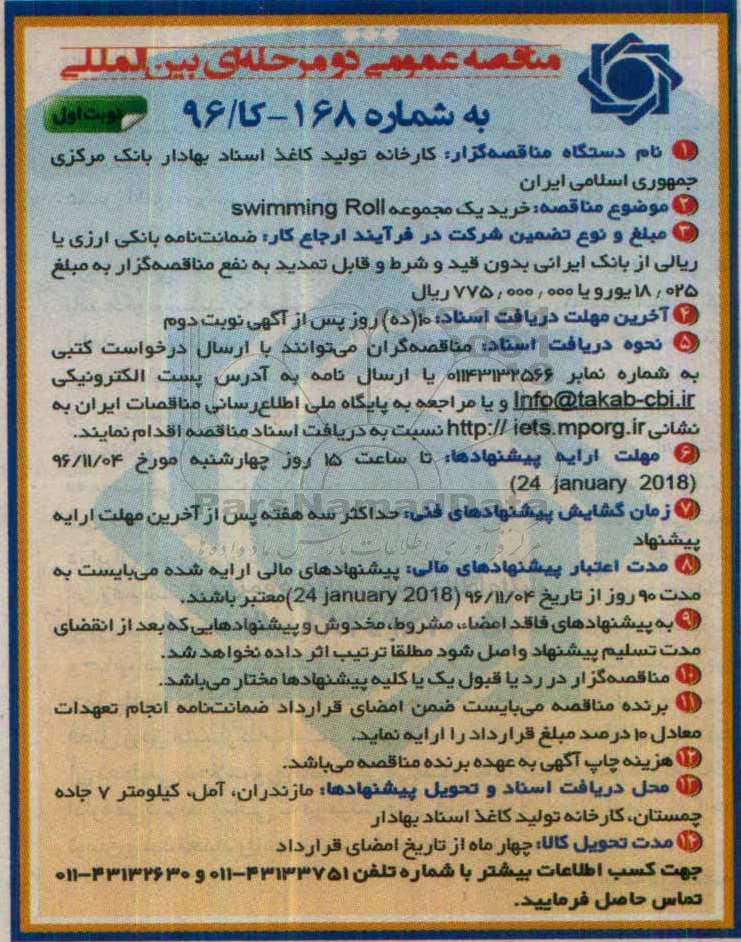 مناقصه عمومی دو مرحله‌ای بین‌المللی
به شماره ۱۶۸-کا/۹۶
نوبت اول
۱ نام دستگاه مناقصه‌گزار: کارخانه تولید کاغذ اسناد بهادار بانک مرکزی
جمهوری اسلامی ایران
۲ موضوع مناقصه: خرید یک مجموعه swimming Roll
۳ مبلغ و نوع تضمین شرکت در فرآیند ارجاع کار: ضمانت‌نامه بانکی ارزی یا
ریالی از بانک ایرانی بدون قید و شرط و قابل تمدید به نفع مناقصه‌گزار به مبلغ
۱۸٬۰۲۵ یورو یا ۷۷۵٬۰۰۰٬۰۰۰ ریال
۴ آخرین مهلت دریافت اسناد: ۱۰(ده) روز پس از آگهی نوبت دوم
۵ نحوه دریافت اسناد: مناقصه‌گران می‌توانند با ارسال درخواست کتبی
به شماره نمابر ۰۱۱۴۳۱۳۲۵۶۶ یا ارسال نامه به آدرس پست الکترونیکی
Info@takab-cbi.ir و یا مراجعه به پایگاه ملی اطلاع‌رسانی مناقصات ایران به
نشانی http:// iets.mporg.ir نسبت به دریافت اسناد مناقصه اقدام نمایند.
۶ مهلت ارایه پیشنهادها: تا ساعت ۱۵ روز چهارشنبه مورخ ۹۶/۱۱/۰۴
(24 january 2018)
۷ زمان گشایش پیشنهادهای فنی: حداکثر سه هفته پس از آخرین مهلت ارایه
پیشنهاد
۸ مدت اعتبار پیشنهادهای مالی: پیشنهادهای مالی ارایه شده می‌بایست به
مدت ۹۰ روز از تاریخ ۹۶/۱۱/۰۴ (24 january 2018) معتبر باشند.
۹ به پیشنهادهای فاقد امضاء، مشروط، مخدوش و پیشنهادهایی که بعد از انقضای
مدت تسلیم پیشنهاد واصل شود مطلقاً ترتیب اثر داده نخواهد شد.
۱۰ مناقصه‌گزار در رد یا قبول یک یا کلیه پیشنهادها مختار می‌باشد.
۱۱ برنده مناقصه می‌بایست ضمن امضای قرارداد ضمانت‌نامه انجام تعهدات
معادل ۱۰ درصد مبلغ قرارداد را ارایه نماید.
۱۲ هزینه چاپ آگهی به عهده برنده مناقصه می‌باشد.
۱۳ محل دریافت اسناد و تحویل پیشنهادها: مازندران، آمل، کیلومتر ۷ جاده
چمستان، کارخانه تولید کاغذ اسناد بهادار
۱۴ مدت تحویل کالا: چهار ماه از تاریخ امضای قرارداد
جهت کسب اطلاعات بیشتر با شماره تلفن ۴۳۱۳۳۷۵۱-۰۱۱ و ۴۳۱۳۲۶۳۰-۰۱۱
تماس حاصل فرمایید.
ParsNamadData